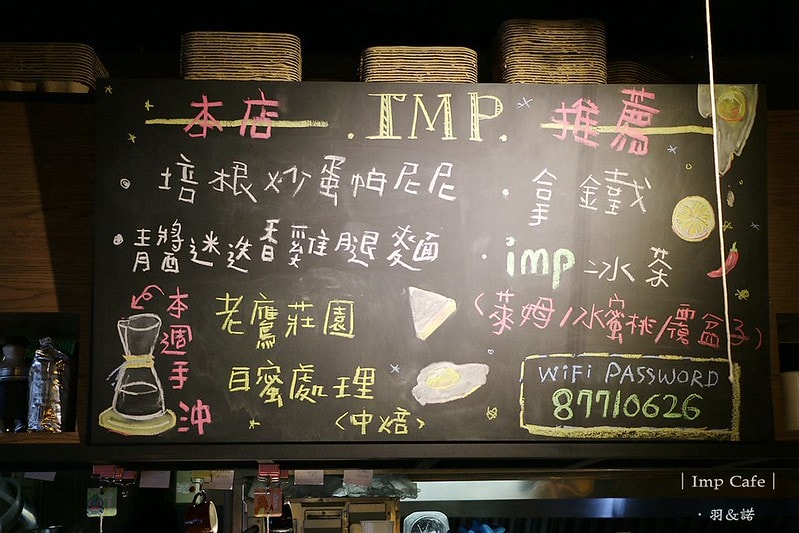 本店 .IMP. 推薦
· 培根炒蛋帕尼尼
· 拿鐵
· 青醬迷迭香雞腿麵
· imp 冰茶
(萊姆/水蜜桃/覆盆子)
本週手沖
老鷹莊園
白蜜處理
<中焙>
WiFi PASSWORD
87710626
| Imp Cafe |
· 羽&諾